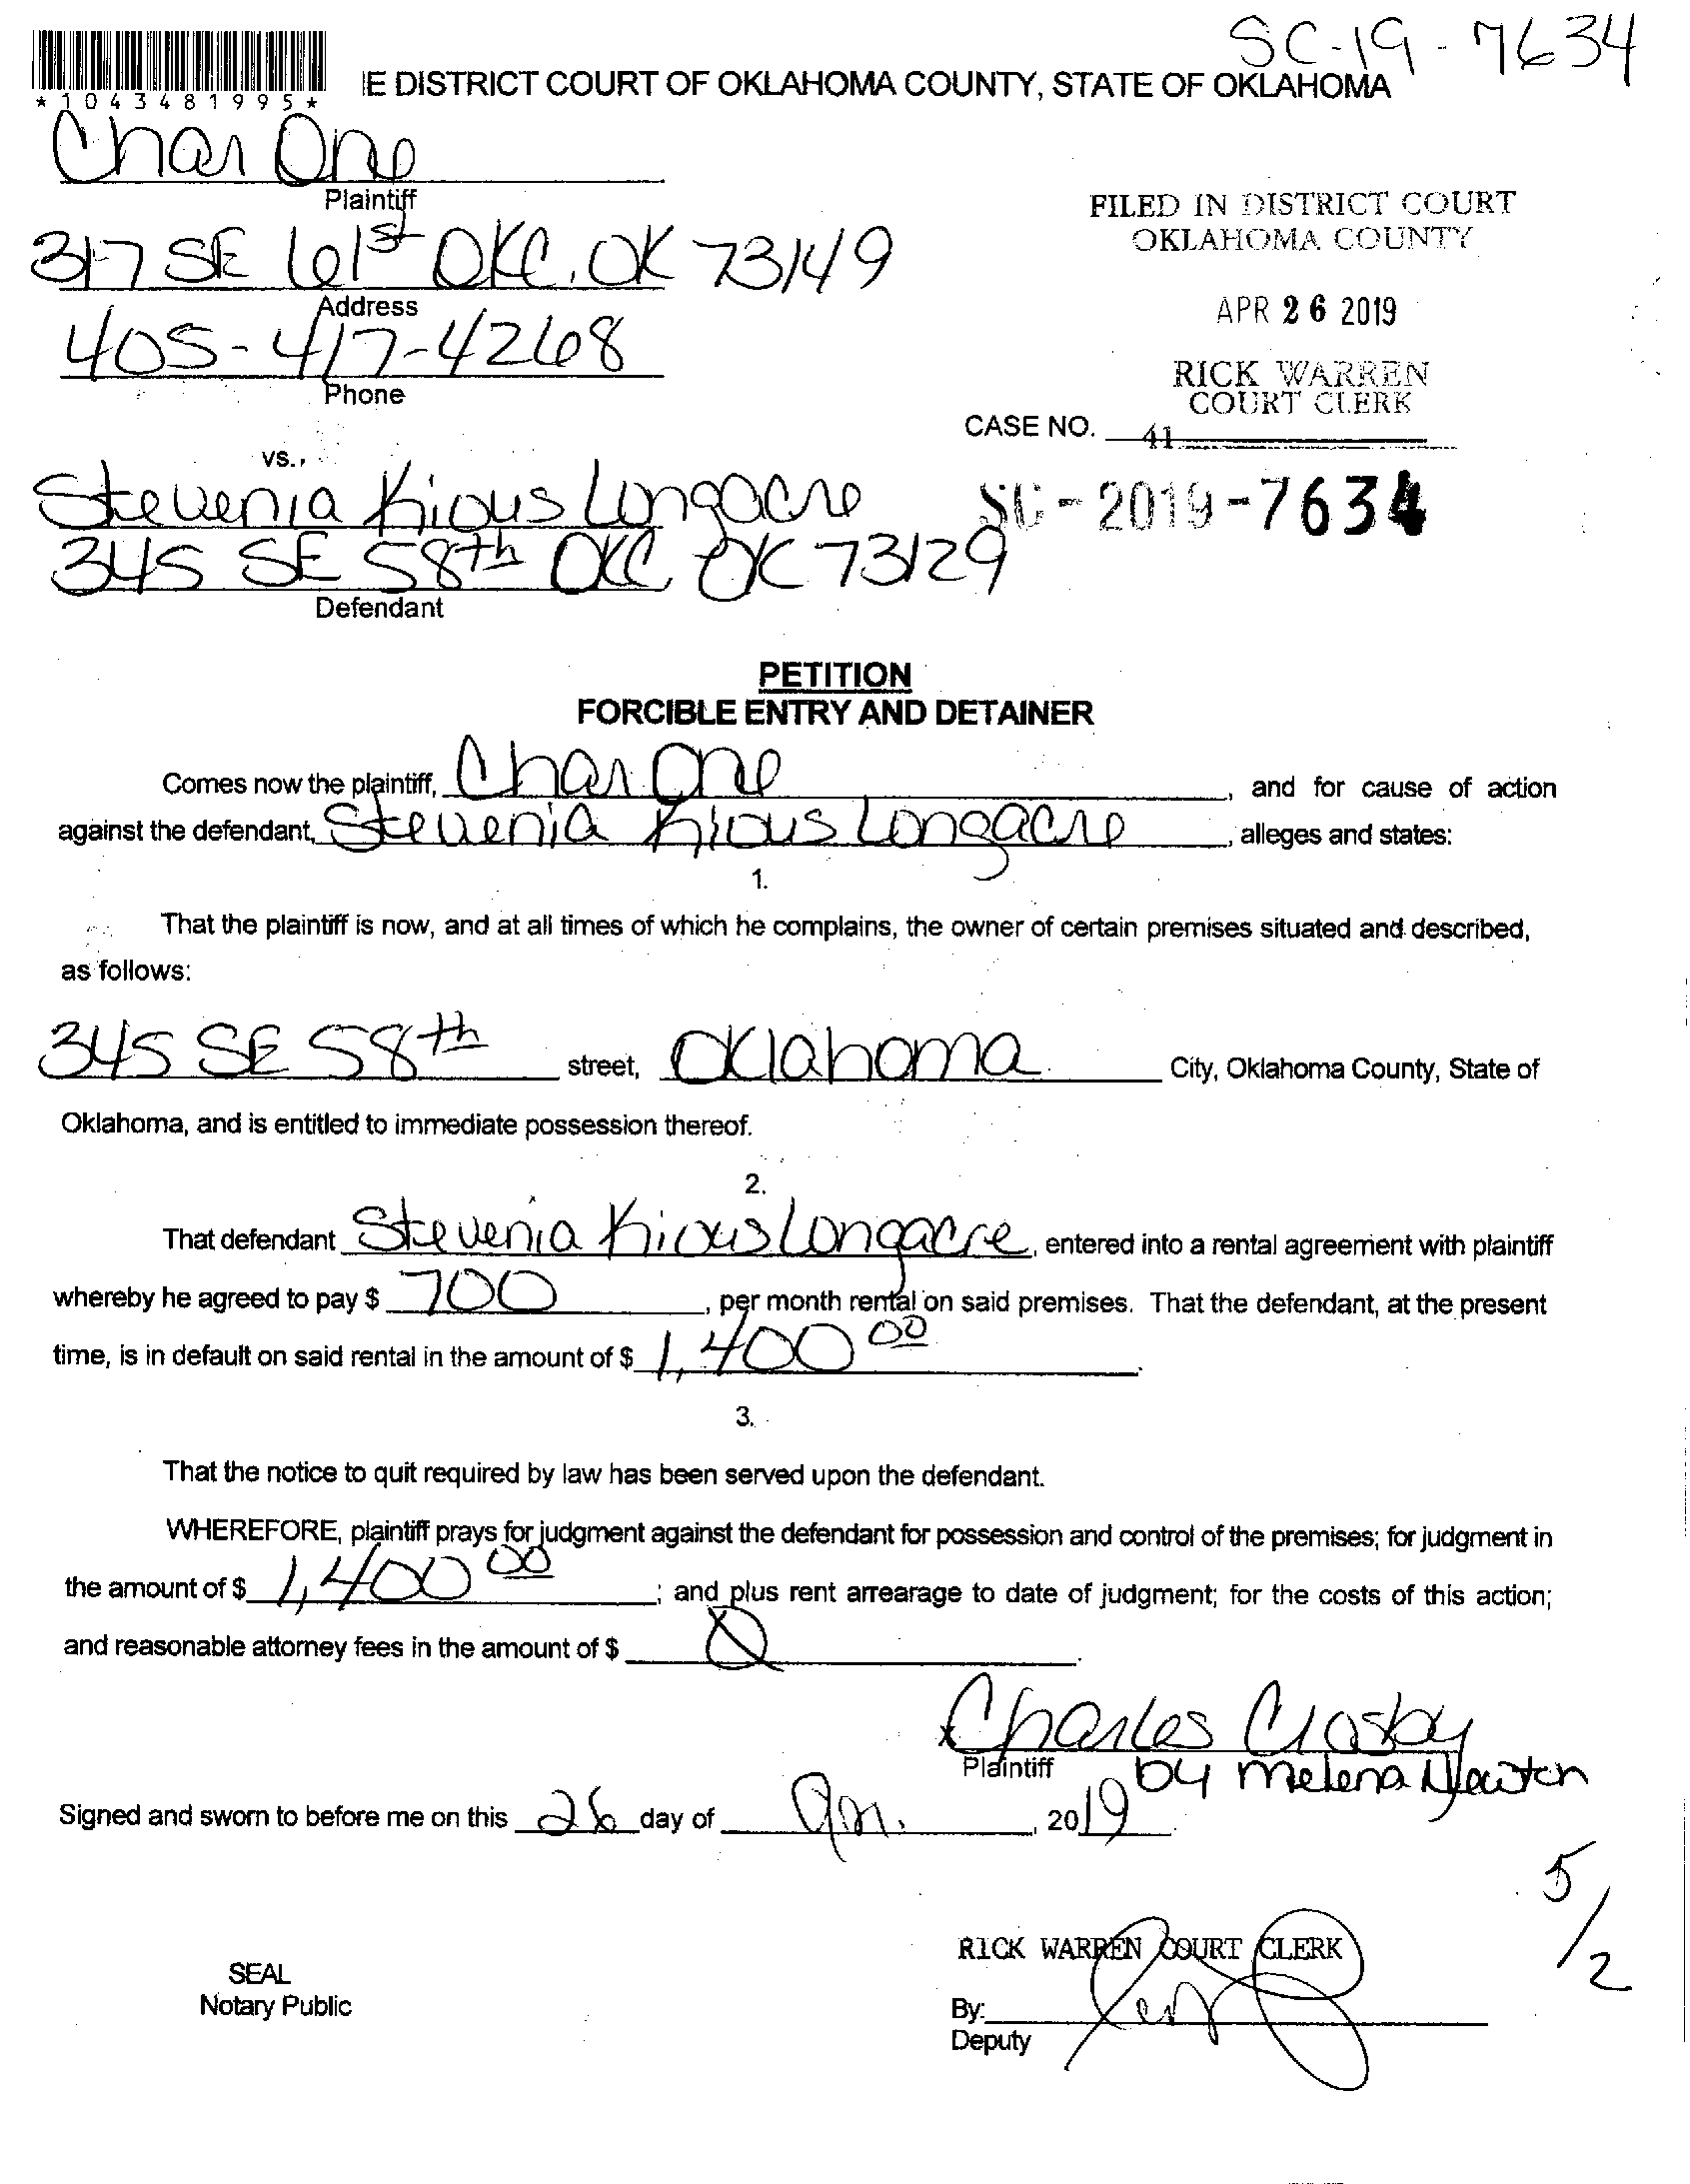 SC-19-7634
*1043481995*
IE DISTRICT COURT OF OKLAHOMA COUNTY, STATE OF OKLAHOMA
Char One
Plaintiff
317 SE 61st OKC, OK 73149
Address
405-417-4268
Phone
FILED IN DISTRICT COURT
OKLAHOMA COUNTY
APR 26 2019
RICK WARREN
COURT CLERK
CASE NO. 41
vs.,
Stevenia Kious Longacre
SC-2019-7634
345 SE 58th OKC OK 73129
Defendant
PETITION
FORCIBLE ENTRY AND DETAINER
Comes now the plaintiff, Char One, and for cause of action
against the defendant, Stevenia Kious Longacre, alleges and states:
1.
That the plaintiff is now, and at all times of which he complains, the owner of certain premises situated and described,
as follows:
345 SE 58th street, Oklahoma City, Oklahoma County, State of
Oklahoma, and is entitled to immediate possession thereof.
2.
That defendant Stevenia Kious Longacre, entered into a rental agreement with plaintiff
whereby he agreed to pay $ 700, per month rental on said premises. That the defendant, at the present
time, is in default on said rental in the amount of $ 1,400 00.
3.
That the notice to quit required by law has been served upon the defendant.
WHEREFORE, plaintiff prays for judgment against the defendant for possession and control of the premises; for judgment in
the amount of $ 1,400 00; and plus rent arrearage to date of judgment; for the costs of this action;
and reasonable attorney fees in the amount of $ 0.
x Charles Crosby
Plaintiff by Melena Newton
Signed and sworn to before me on this 26 day of , 2019.
5/2
RICK WARREN COURT CLERK
SEAL
Notary Public
By:
Deputy